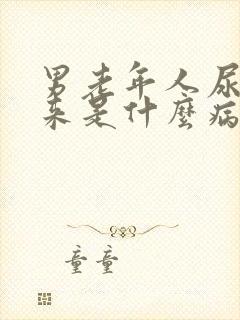 男老年人尿
来是什麼病
童童